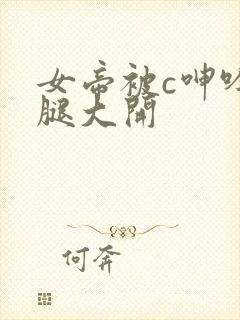 女帝被c呻吟
腿大开
何奔